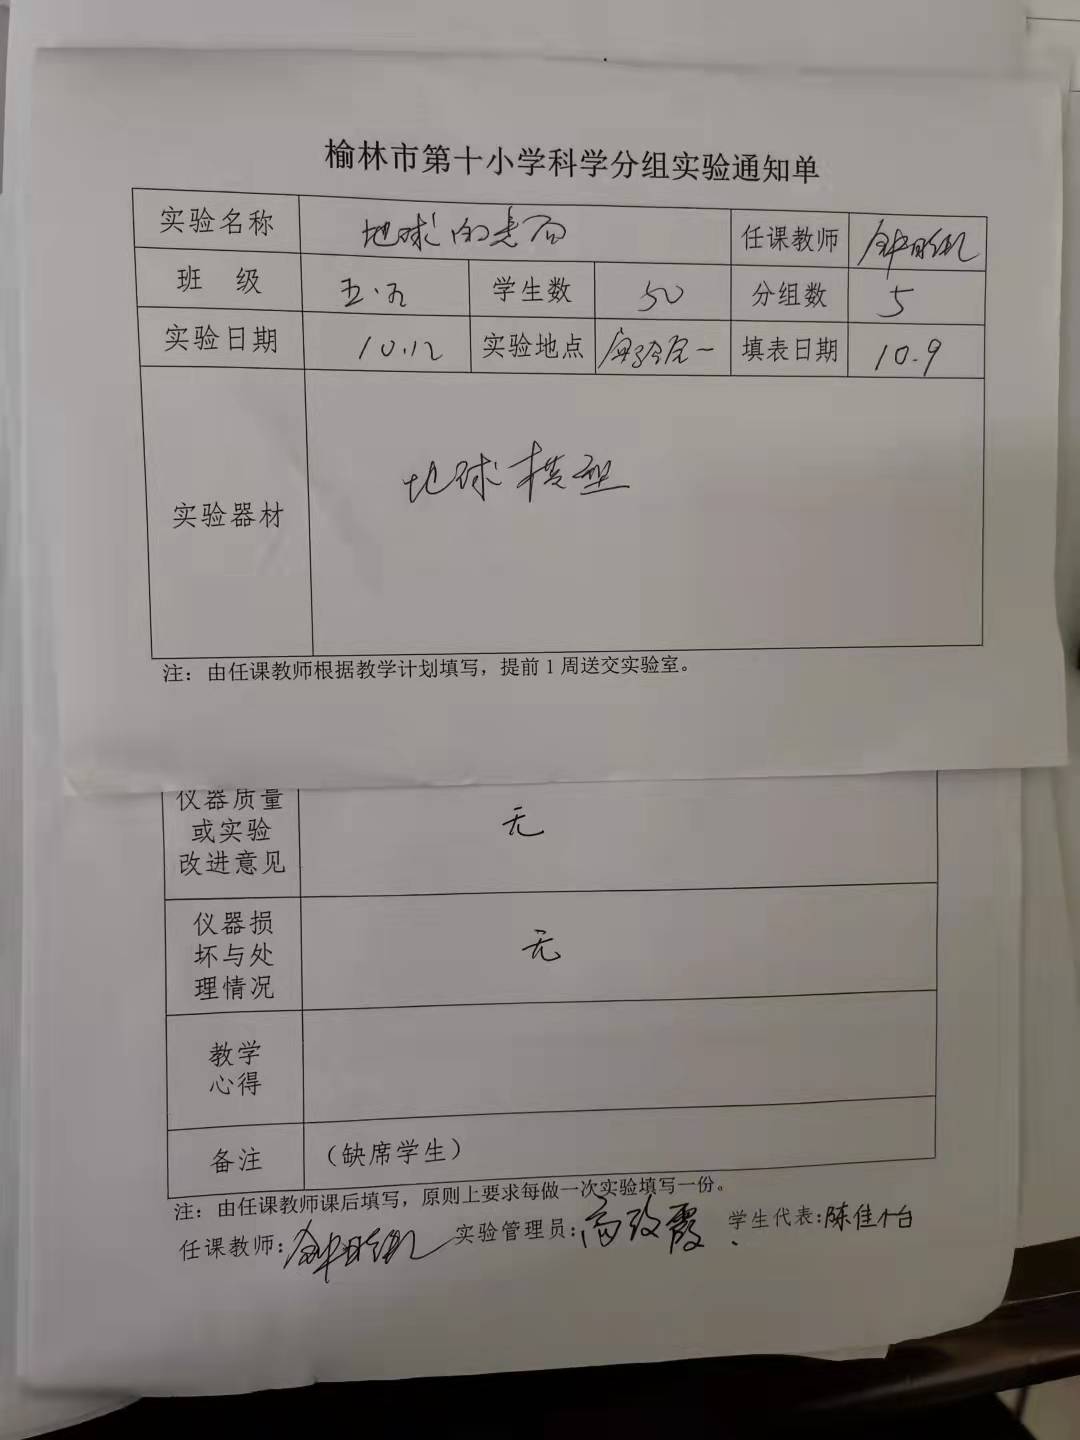 榆林市第十小学科学分组实验通知单
实验名称 地球的表面 任课教师
班 级 五.九 学生数 50 分组数 5
实验日期 10.12 实验地点 实验室一 填表日期 10.9
实验器材 地球模型
注：由任课教师根据教学计划填写，提前1周送交实验室。
仪器质量
或实验
改进意见
无
仪器损
坏与处
理情况
无
教学
心得
备注 （缺席学生）
注：由任课教师课后填写，原则上要求每做一次实验填写一份。
任课教师： 实验管理员：高改霞 学生代表：陈佳怡